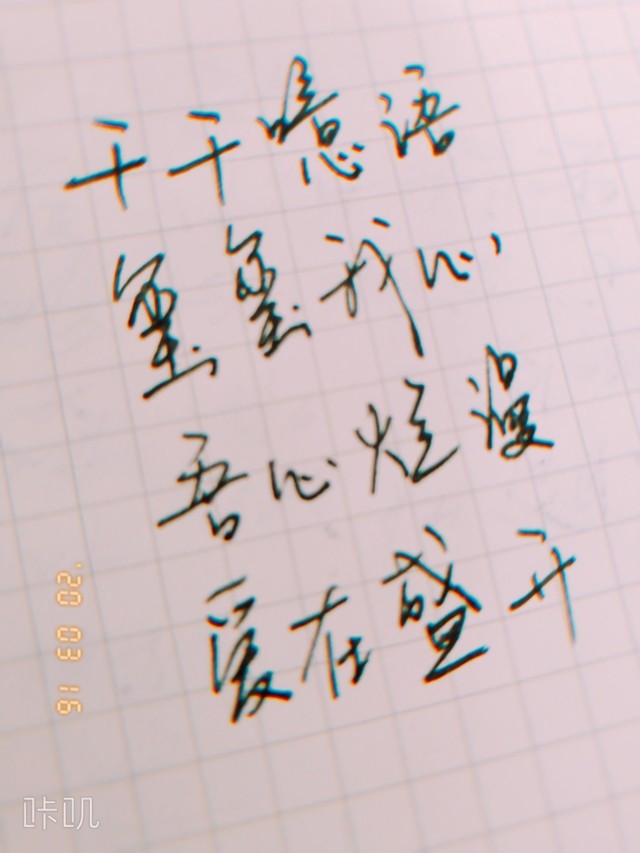 千千噫语
玺玺我心,
吾心烂漫
爱在盛开
'20 03 16
咔叽